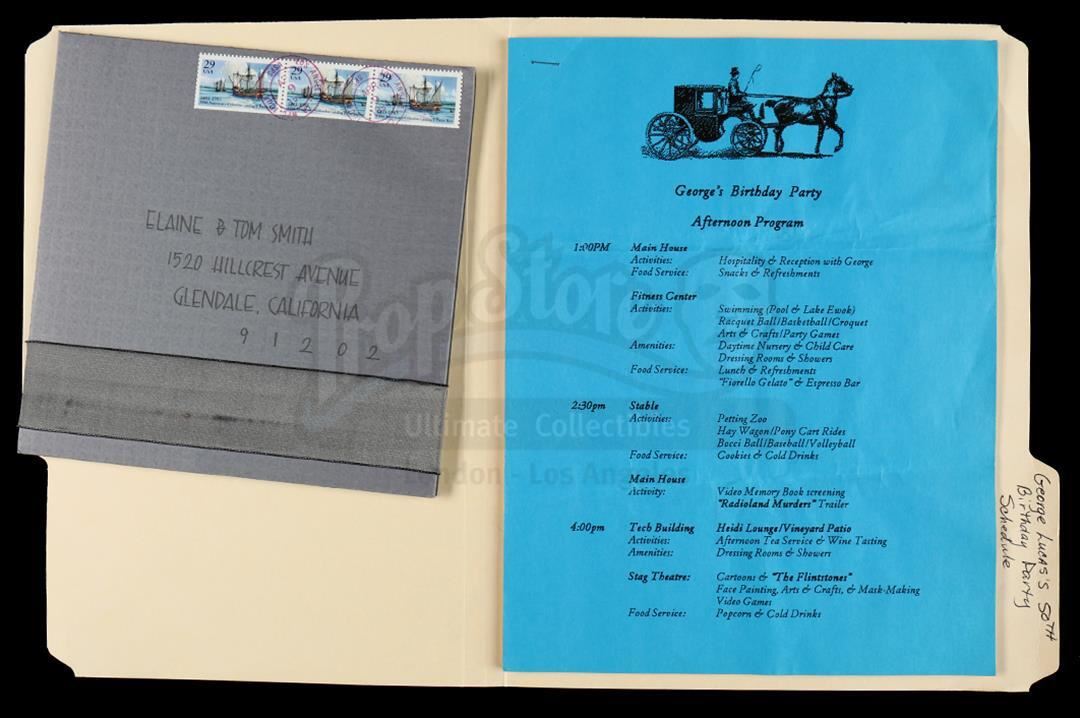 29 29 29
USA
ELAINE & TOM SMITH
1520 HILLCREST AVENUE
GLENDALE, CALIFORNIA
9 1 2 0 2
George's Birthday Party
Afternoon Program
1:00PM Main House
Activities: Hospitality & Reception with George
Food Service: Snacks & Refreshments
Fitness Center
Activities: Swimming (Pool & Lake Ewok)
Racquet Ball/Basketball/Croquet
Arts & Crafts/Party Games
Amenities: Daytime Nursery & Child Care
Dressing Rooms & Showers
Food Service: Lunch & Refreshments
"Fiorello Gelato" & Espresso Bar
2:30pm Stable
Activities: Petting Zoo
Hay Wagon/Pony Cart Rides
Bocci Ball/Baseball/Volleyball
Food Service: Cookies & Cold Drinks
Main House
Activity: Video Memory Book screening
"Radioland Murders" Trailer
4:00pm Tech Building Heidi Lounge/Vineyard Patio
Activities: Afternoon Tea Service & Wine Tasting
Amenities: Dressing Rooms & Showers
Stag Theatre: Cartoons & "The Flintstones"
Face Painting, Arts & Crafts, & Mask-Making
Video Games
Food Service: Popcorn & Cold Drinks
George Lucas's 50TH
Birthday Party
Schedule
PropStore
Ultimate Collectibles
London - Los Angeles